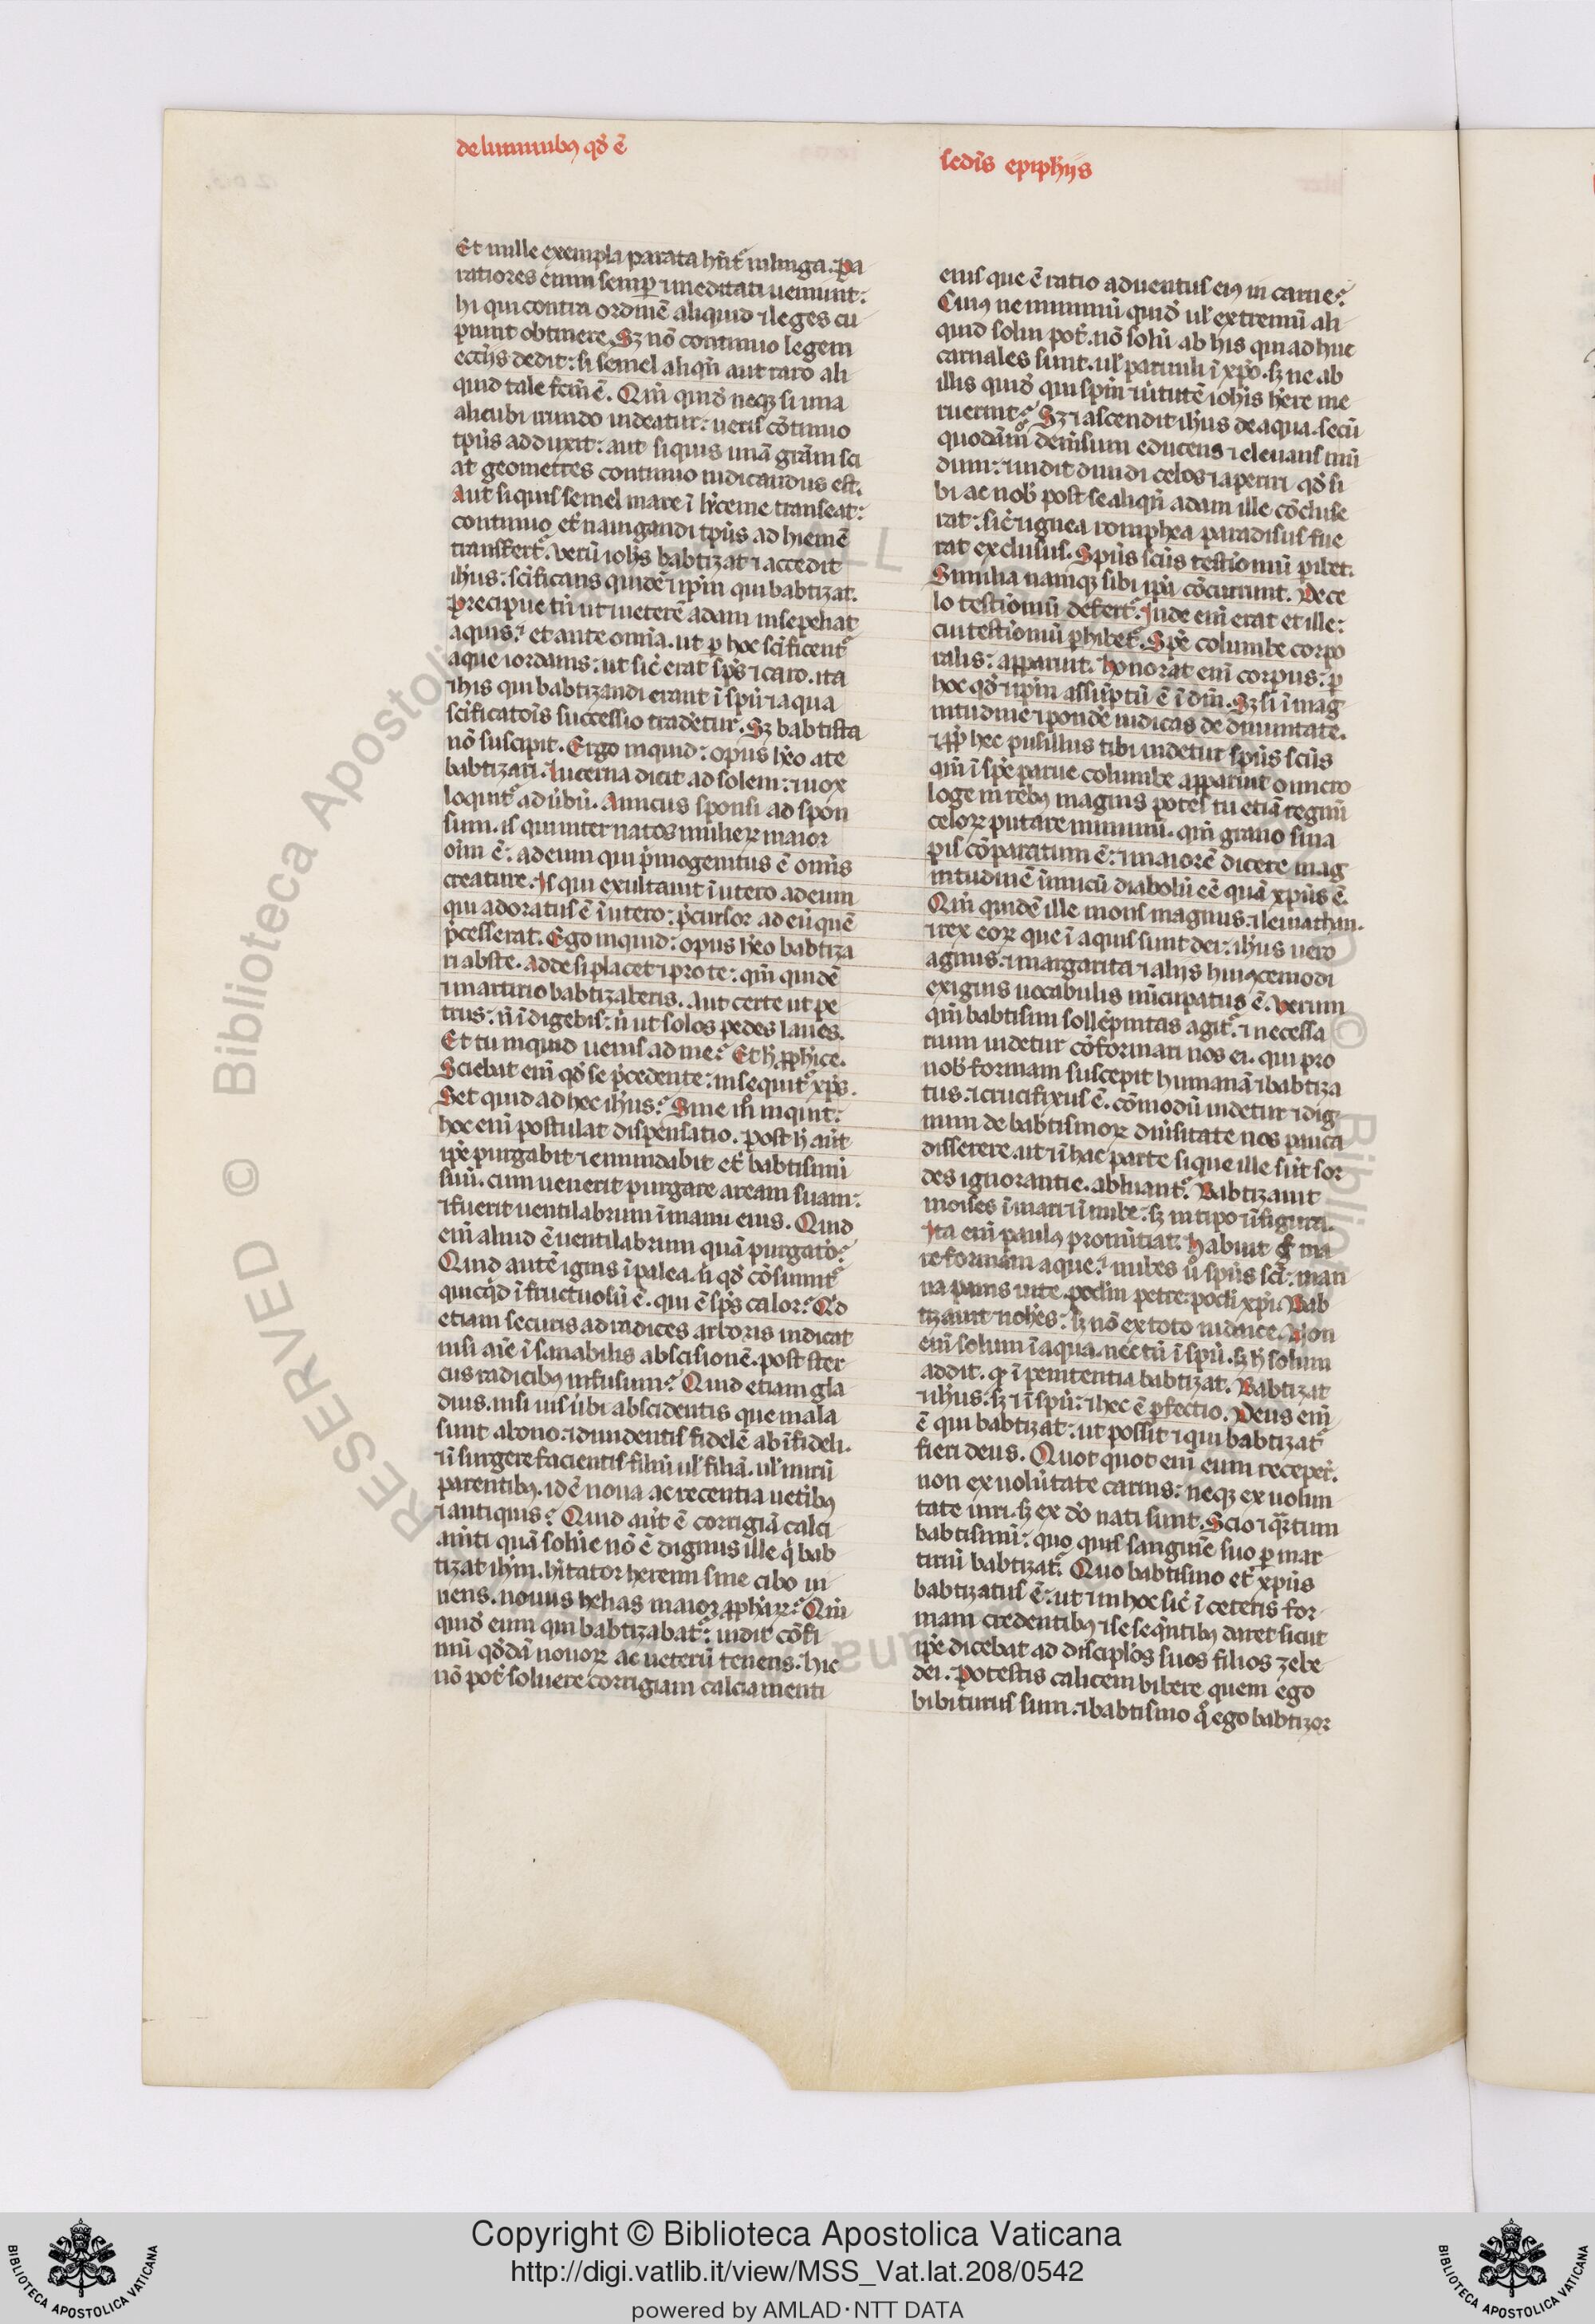 de luminibꝯ qđ ē
secđis epiphijs
Et mille exempla parata hn̄t in linga. Pa
ratiores enim semp̲ ⁊ meditati ueniunt:
hi qui contra ordinē aliquid ⁊ leges cu
piunt obtinere. Sꝫ nō continuo legem
eccl̄iis dedit: si semel aliqn̄ aut raro ali
quid tale fcm̄ ē. Qm̄ quid' neqꝫ si una
alicubi irundo uideatur: ueris cōtinuo
tp̄us adduxit: aut si quis unā grām sci
at geometres continuo iudicandus est.
Aut si quis semel mare ī hyceme transeat:
continuo et̄ nauigandi tp̄us ad hiemē
transfert᷑. Verū ioh̄s babtizat ⁊ accedit
ih̄us: sc̄ificans quidē ⁊ ip̄m qui babtizat.
Precipue tn̄ ut ueterē adam insepeliat
aquis. et ante omnia. ut p̲ hoc sc̄ificent᷑
aque iordanis: ut sic̄ erat sp̄s ⁊ caro. ita
⁊ his qui babtizandi erant ī spū ⁊ aqua
sc̄ificatōis successio tradetur. Sꝫ babtista
nō suscipit. Ergo inquid: opus h̄eo a te
babtizari. Lucerna dicit ad solem: ⁊ uox
loquit᷑ ad ūbū. Amicus sponsi ad spon
sum. is qui inter natos mulierꝝ maior
oīm ē: ad eum qui p̄mogenitus ē omīs
creature. Is qui exultauit ī utero. ad eum
qui adoratus ē ī utero: p̄cursor ad eū quē
p̄cesserat. Ego inquid: opus h̄eo babtiza
ri abs te. Adde si placet ⁊ pro te: qm̄ quidē
⁊ martirio babtizaberis. Aut certe ut pe
trus: n̄ īdigebis: n̄ ut solos pedes laues.
Et tu inquid uenis ad me? Et h̄ ꝓph̄ice.
Sciebat enī qđ se p̄cedente: insequit᷑ xp̄s.
Set quid ad hec ih̄us? Sine m̊ inquit:
hoc enī postulat dispensatio. Post h̄ aūt
ip̄e purgabit ⁊ emundabit et̄ babtismū
suū. cum uenerit purgare aream suam:
⁊ fuerit uentilabrum ī manu eius. Quid
enī aliud ē uentilabrum quā purgatō?
Quid autē ignis ī palea. n̄ qđ cōsumit᷑
quicq̇d īfructuosū ē. qui ē sp̄s calor? Qd
etiam securis ad radices arboris indicat
nisi aīe īsanabilis abscisionē. post ster
cus radicibꝯ infusum? Quid etiam gla
dius. nisi uis ūbi abscidentis que mala
sunt a bono: ⁊ diuidentis fidelē ab īfideli.
⁊ īsurgere facientis filiū ul' filiā. ul' nurū
parentibꝯ. id ē noua ac recentia uetibꝯ
⁊ antiquis? Quid aūt ē corrigiā calci
amti quā soluē nō ē dignus ille q̇ bab
tizat ih̄m. hītator heremi sine cibo ui
uens. nouus helias maior ꝓph̄arꝝ? Qm̄
quid' eum qui babtizabat᷑: uidit cōfi
niū qđdā nouorꝝ ac ueterū tenens. Hic
nō pot' soluere corrigiam calciamenti
eius que ē ratio aduentus eiꝯ in carne?
Cuiꝯ ne minimū quid' ul' extremū ali
quid solui pot̄. nō solū ab his qui ad huc
carnales sunt. ul' paruuli ī xp̄o. sꝫ ne ab
illis quid' qui spm̄ ⁊ ūtutē ioh̄is h̄ere me
ruerint? Sꝫ ⁊ ascendit ih̄us de aqua. secū
quodām̊ demsum educens ⁊ eleuans mū
dum: ⁊ uidit diuidi celos ⁊ aperiri qđ si
bi ac nob' post se aliqn̄ adam ille cōcluse
rat: sic̄ ⁊ ignea romphea paradisus fue
rat exclusus. Spūs sc̄us testīoniū p̲ibet.
Similia namqꝫ sibi ip̄i cōcurrunt. De ce
lo testīoniū defert᷑. Inde enī erat et ille:
cui testīoniū p̲hibet᷑. Spē columbe corpo
ralis: apparuit. honorat enī corpus: p̲
hoc qđ ⁊ ip̄m assūptū ē ī dm̄. Sꝫ si ī mag
nitudine ⁊ pondē iudicas de diuinitate.
⁊ ꝓp̄ hec pusillus tibi uidetur spūs sc̄us
qm̄ ī spē parue columbe apparuit o micro
loge in rebꝯ magnis potes tu etiā regnū
celorꝝ putare minimū. qm̄ grano sina
pis cōparatum ē: ⁊ maiorē dicere mag
nitudinē īimicū diabolū eē quā xp̄us ē.
Qm̄ quidē ille mons magnus: ⁊ leuiathan.
⁊ rex eorꝝ que ī aquis sunt dei: ih̄us uero
agnus. ⁊ margarita ⁊ alijs huiꝯcemodi
exiguis uocabulis nūcupatus ē. Verum
qm̄ babtismi sollēpnitas agit᷑. ⁊ necessa
rium uidetur cōformari nos ei. qui pro
nob' formam suscepit humanā ⁊ babtiza
tus. ⁊ crucifixus ē. cōmodū uidetur ⁊ dig
num de babtismorꝝ diūsitate nos pauca
disserere. ut ⁊ ī hac parte si que ille sūt sor
des ignorantie. abluant᷑. Babtizauit
moises ī mari ⁊ ī nube: sꝫ in tipo ⁊ ī figura.
Ita enī paulꝯ pronūtiat. habuit g̊ ma
re formam aque. ⁊ nubes ū̊ spūs sc̄i: man
na panis uite. poclm̄ petre: pocli xp̄i. Bab
tizauit ⁊ ioh̄es: sꝫ nō ex toto iudaice. Non
enī solum ī aqua. nec tn̄ ī spū. sꝫ h̄ solum
addit. qđ ī penitentia babtizat. Babtizat
⁊ ih̄us: sꝫ ⁊ ī spū: ⁊ hec ē p̲fectio. Deus enī
ē qui babtizat: ut possit ⁊ qui babtizat᷑
fieri deus. Quot quot enī eum recepet̄.
non ex uolūtate carnis: neqꝫ ex uolun
tate uiri. sꝫ ex dō nati sunt. Scio ⁊ q̄rtum
babtismū: quo quis sanguine suo p̲ mar
tiriū babtizat᷑. Quo babtismo et̄ xp̄us
babtizatus ē: ut ⁊ in hoc sic̄ ī ceteris for
mam credentibꝯ ⁊ se seq̄ntibꝯ daret sicut
ip̄e dicebat ad discipl̄os suos filios zebe
dei. Potestis calicem bibere quem ego
bibiturus sum. ⁊ babtismo q̊ ego babtizor
Copyright © Biblioteca Apostolica Vaticana
http://digi.vatlib.it/view/MSS_Vat.lat.208/0542
powered by AMLAD·NTT DATA